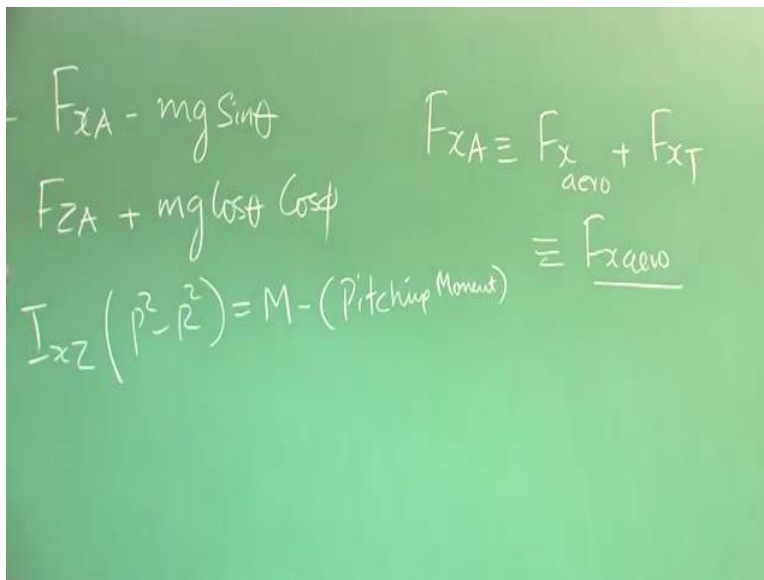 - FxA - mg Sinθ
FzA + mg Cosθ Cosϕ
Ixz (P² - R²) = M - (Pitching Moment)
FxA ≡ Fx aero + FxT
≡ Fx aero